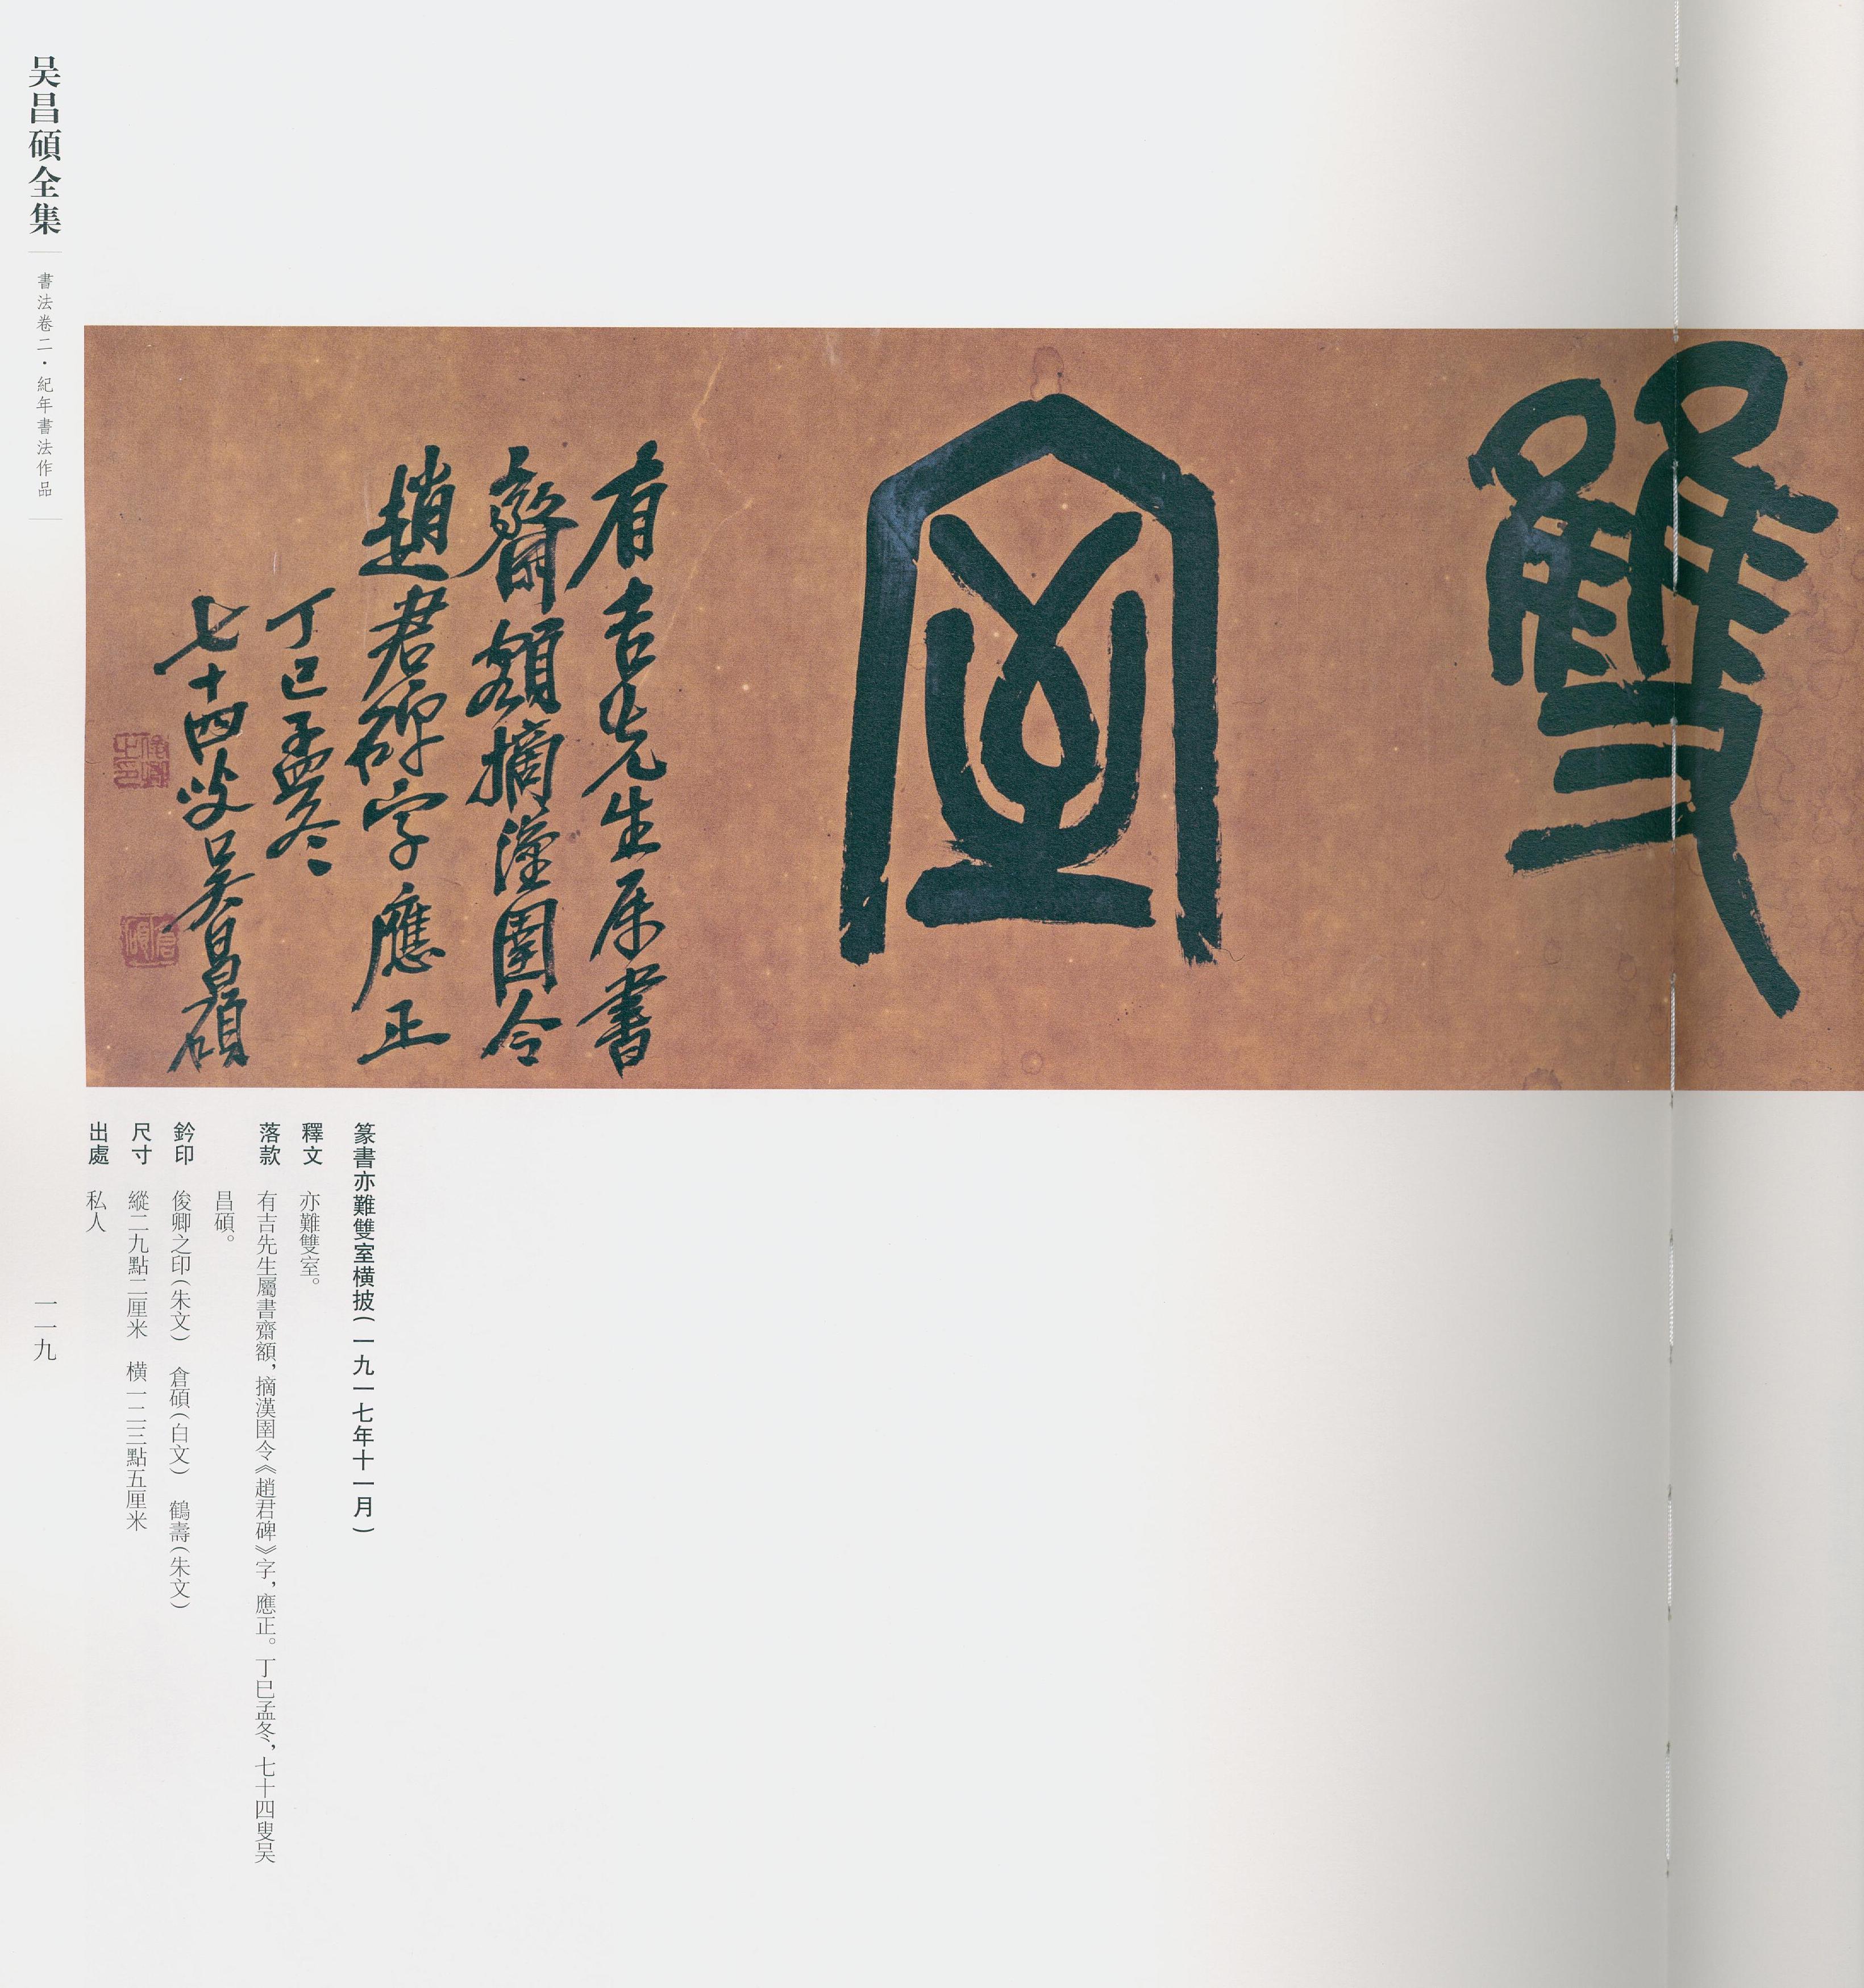 雙室
有吉先生屬書
齋額摘漢圉令
趙君碑字應正
丁巳孟冬
七十四叟吴昌碩
俊卿之印
倉碩
篆書亦難雙室横披(一九一七年十一月)
釋文 亦難雙室。
落款 有吉先生屬書齋額,摘漢圉令《趙君碑》字,應正。丁巳孟冬,七十四叟吴
昌碩。
鈐印 俊卿之印(朱文) 倉碩(白文) 鶴壽(朱文)
尺寸 縱二九點二厘米 横一二三點五厘米
出處 私人
吴昌碩全集
書法卷二·紀年書法作品
一一九